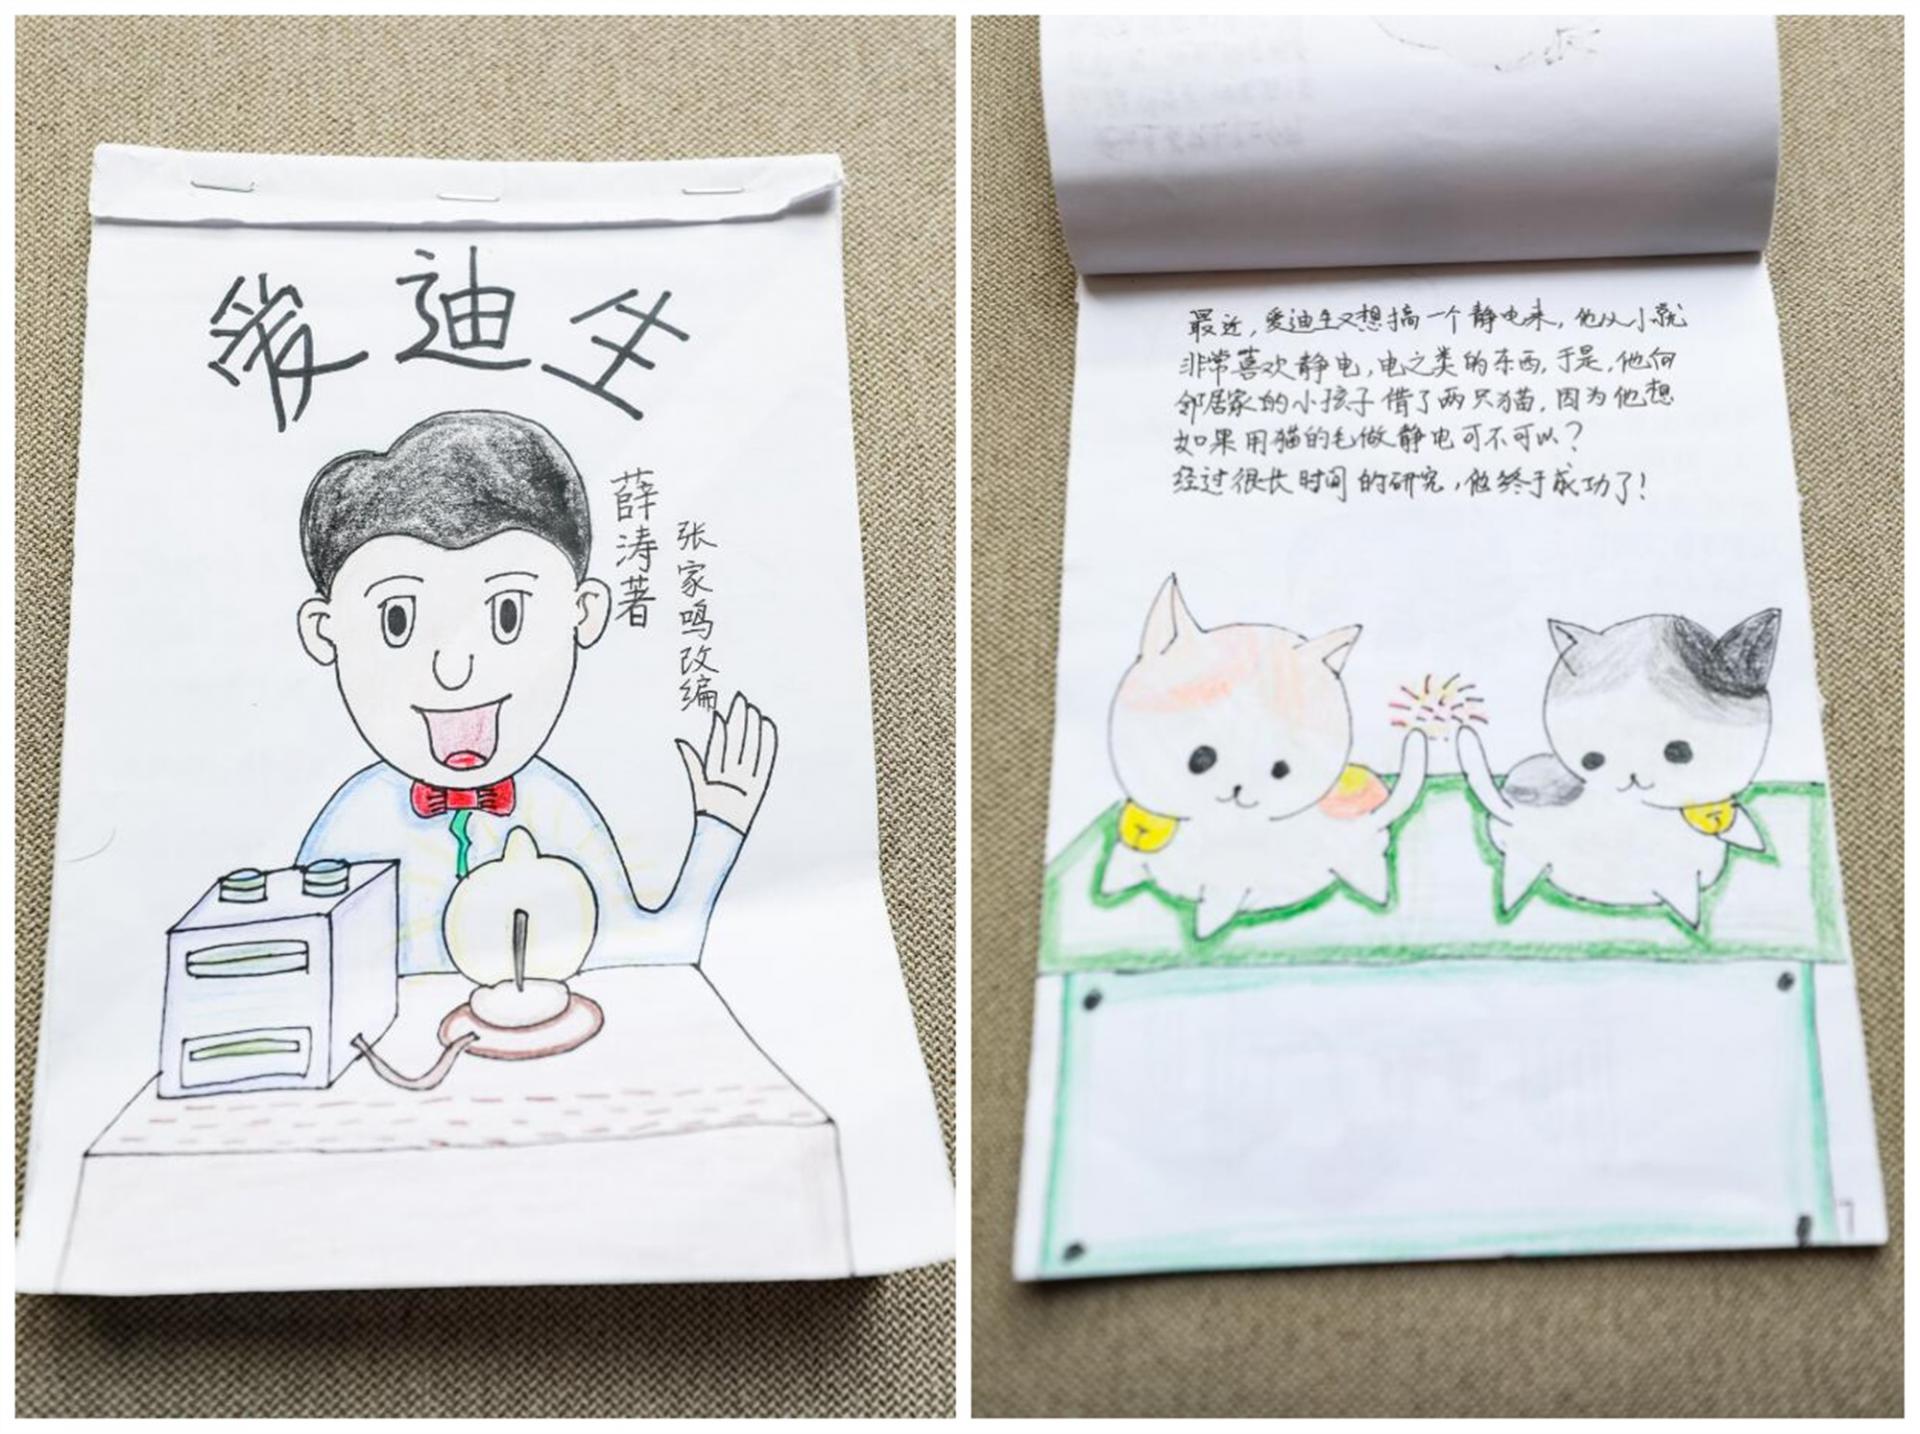 爱迪生
薛涛著
张家鸣改编
最近,爱迪生又想搞一个静电来,他从小就
非常喜欢静电,电之类的东西,于是,他向
邻居家的小孩子借了两只猫,因为他想
如果用猫的毛做静电可不可以?
经过很长时间的研究,他终于成功了!
7